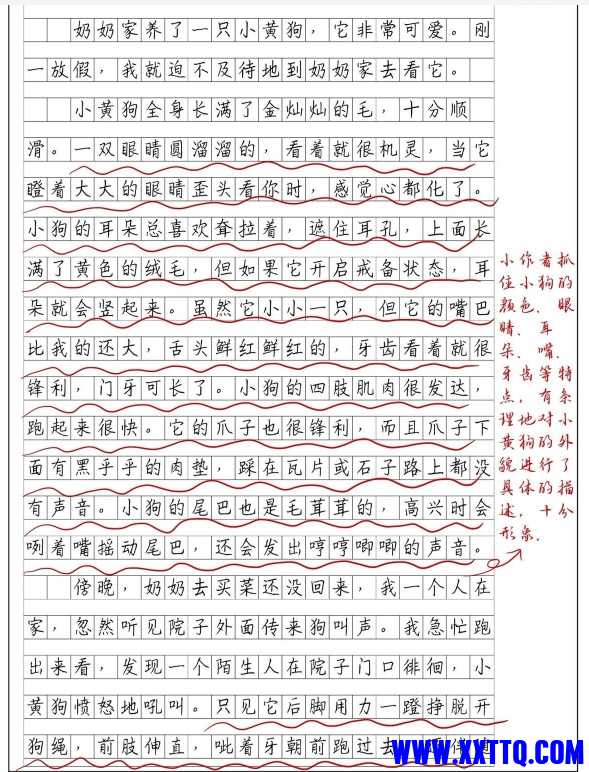 奶奶家养了一只小黄狗，它非常可爱。刚
一放假，我就迫不及待地到奶奶家去看它。
小黄狗全身长满了金灿灿的毛，十分顺
滑。一双眼睛圆溜溜的，看着就很机灵，当它
瞪着大大的眼睛歪头看你时，感觉心都化了。
小狗的耳朵总喜欢耷拉着，遮住耳孔，上面长
满了黄色的绒毛，但如果它开启戒备状态，耳
朵就会竖起来。虽然它小小一只，但它的嘴巴
比我的还大，舌头鲜红鲜红的，牙齿看着就很
锋利，门牙可长了。小狗的四肢肌肉很发达，
跑起来很快。它的爪子也很锋利，而且爪子下
面有黑乎乎的肉垫，踩在瓦片或石子路上都没
有声音。小狗的尾巴也是毛茸茸的，高兴时会
咧着嘴摇动尾巴，还会发出哼哼唧唧的声音。
傍晚，奶奶去买菜还没回来，我一个人在
家，忽然听见院子外面传来狗叫声。我急忙跑
出来看，发现一个陌生人在院子门口徘徊，小
黄狗愤怒地吼叫。只见它后脚用力一蹬挣脱开
狗绳，前肢伸直，呲着牙朝前跑过去
小作者抓
住小狗的
颜色、眼
睛、耳
朵、嘴、
牙齿等特
点，有条
理地对小
黄狗的外
貌进行了
具体的描
述，十分
形象。
WWW.XXTTQ.COM